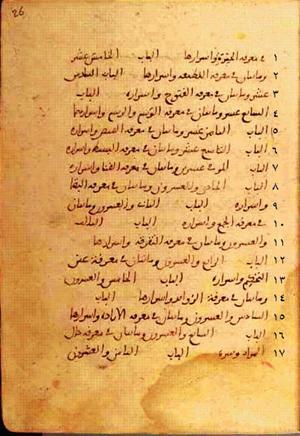 26
١ في معرفة الحقيقة واسرارها الباب الخامس عشر
٢ ومايتان في معرفة اللطيفة واسرارها الباب السادس
٣ عشر ومايتان في معرفة الفتوح واسراره الباب
٤ السابع عشر ومايتان في معرفة الوسم والرسم واسرارهما
٥ الباب الثامن عشر ومايتان في معرفة القبض واسراره
٦ الباب التاسع عشر ومايتان في معرفة البسط واسراره
٧ الباب الموفي عشرين ومايتان في معرفة الفنا واسراره
٨ الباب الحادي والعشرون ومايتان في معرفة البقا
٩ واسراره الباب الثاني والعشرون ومايتان
١٠ في معرفة الجمع واسراره الباب الثالث
١١ والعشرون ومايتان في معرفة التفرقة واسرارها
١٢ الباب الرابع والعشرون ومايتان في معرفة عين
١٣ التحكيم واسراره الباب الخامس والعشرون
١٤ ومايتان في معرفة الزوائد واسرارها الباب
١٥ السادس والعشرون ومايتان في معرفة الارادة واسرارها
١٦ الباب السابع والعشرون ومايتان في معرفة حال
١٧ المراد وسره الباب الثامن والعشرون